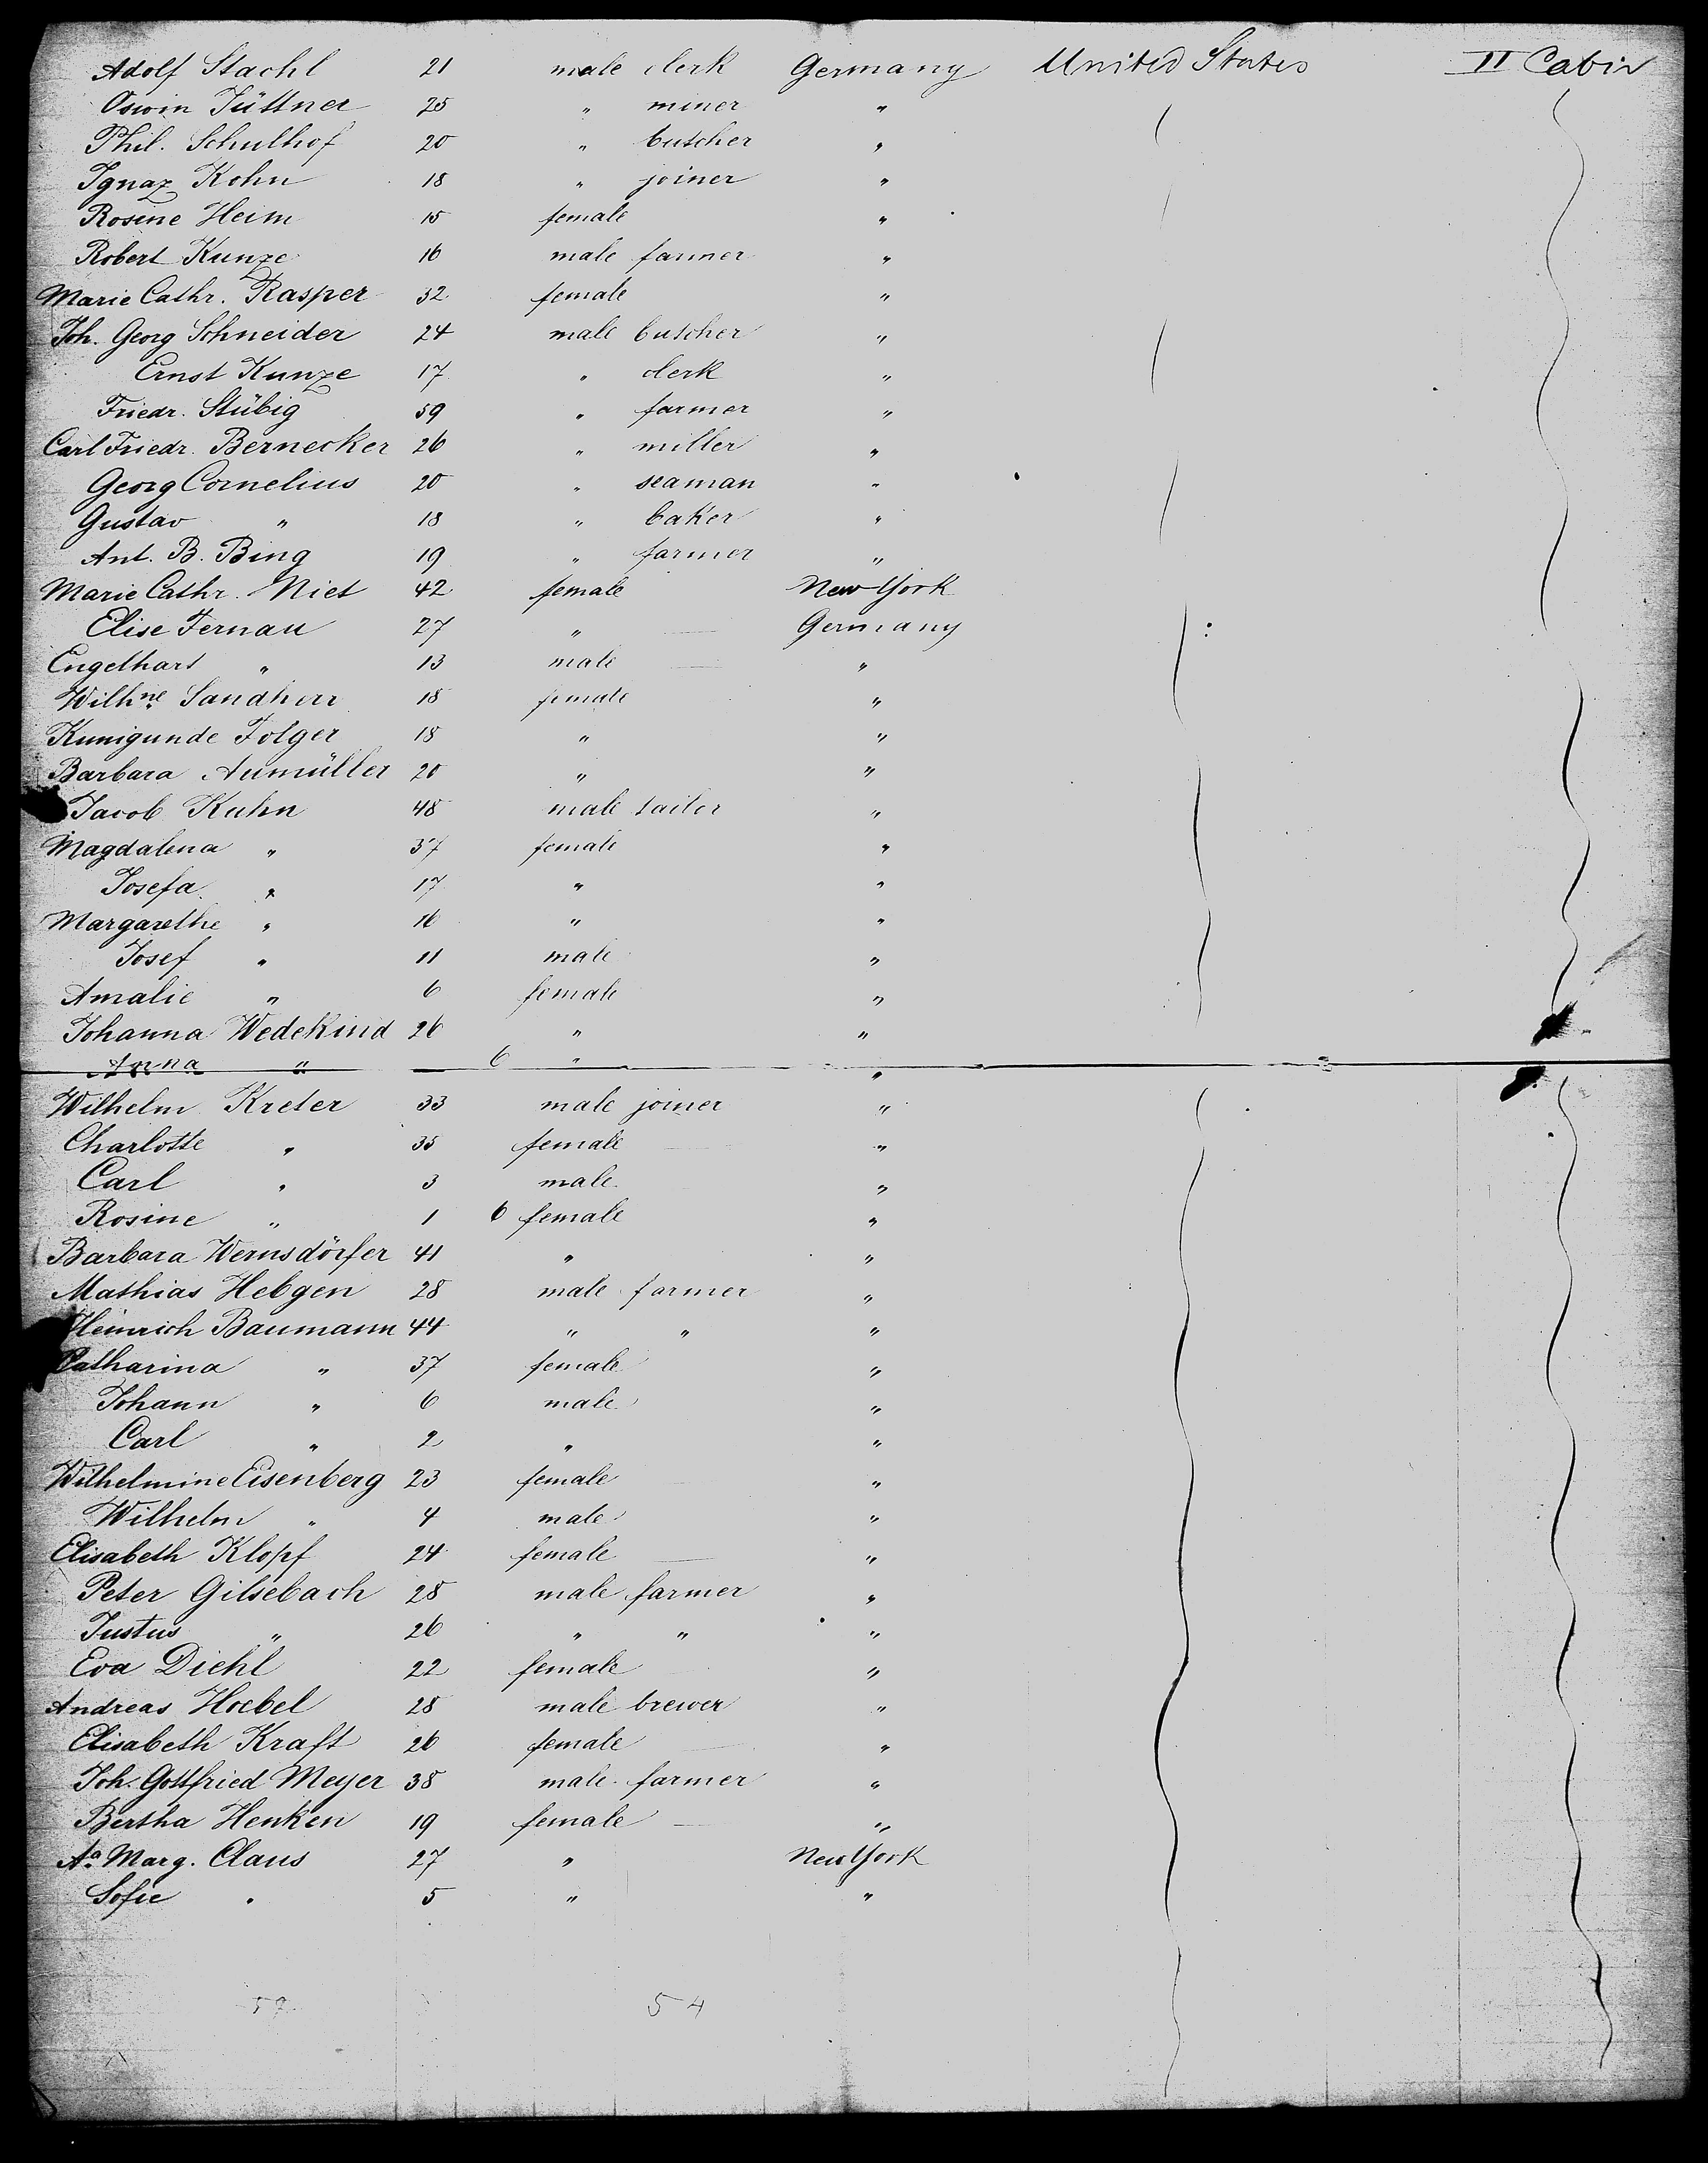 Adolf Stachl 21 male clerk Germany United States II Cabin
Oswin Jüttner 25 " miner "
Phil. Schulhof 20 " butcher "
Ignaz Kohn 18 " joiner "
Rosine Heim 15 female "
Robert Kunze 16 male farmer "
Marie Cathr. Rasper 32 female "
Joh. Georg Schneider 24 male butcher "
Ernst Kunze 17 " clerk "
Friedr. Stübig 59 " farmer "
Carl Friedr. Bernecker 26 " miller "
Georg Cornelius 20 " seaman "
Gustav " 18 " baker "
Ant. B. Bing 19 " farmer "
Marie Cathr. Niet 42 female New York
Elise Fernau 27 " Germany
Engelhart " 13 male "
Wilhne Sandherr 18 female "
Kunigunde Folger 18 " "
Barbara Aumüller 20 " "
Jacob Kuhn 48 male tailor "
Magdalena " 37 female "
Josefa " 17 " "
Margarethe " 16 " "
Josef " 11 male "
Amalie " 6 female "
Johanna Wedekind 26 " "
Anna " 6 " "
Wilhelm Kreter 33 male joiner "
Charlotte " 35 female "
Carl " 3 male "
Rosine " 1 6 female "
Barbara Wernsdörfer 41 " "
Mathias Hebgen 28 male farmer "
Heinrich Baumann 44 " " "
Catharina " 37 female "
Johann " 6 male "
Carl " 2 " "
Wilhelmine Eisenberg 23 female "
Wilhelm " 4 male "
Elisabeth Klopf 24 female "
Peter Gilsebach 28 male farmer "
Justus " 26 " " "
Eva Diehl 22 female "
Andreas Hoebel 28 male brewer "
Elisabeth Kraft 26 female "
Joh. Gottfried Meyer 38 male farmer "
Bertha Henken 19 female "
Aa. Marg. Claus 27 " New York
Sofie " 5 " "
54